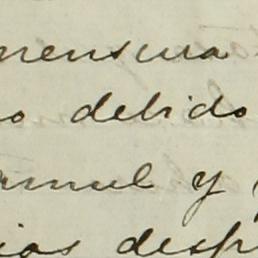 mensura
o debido
rmul y
ias desp